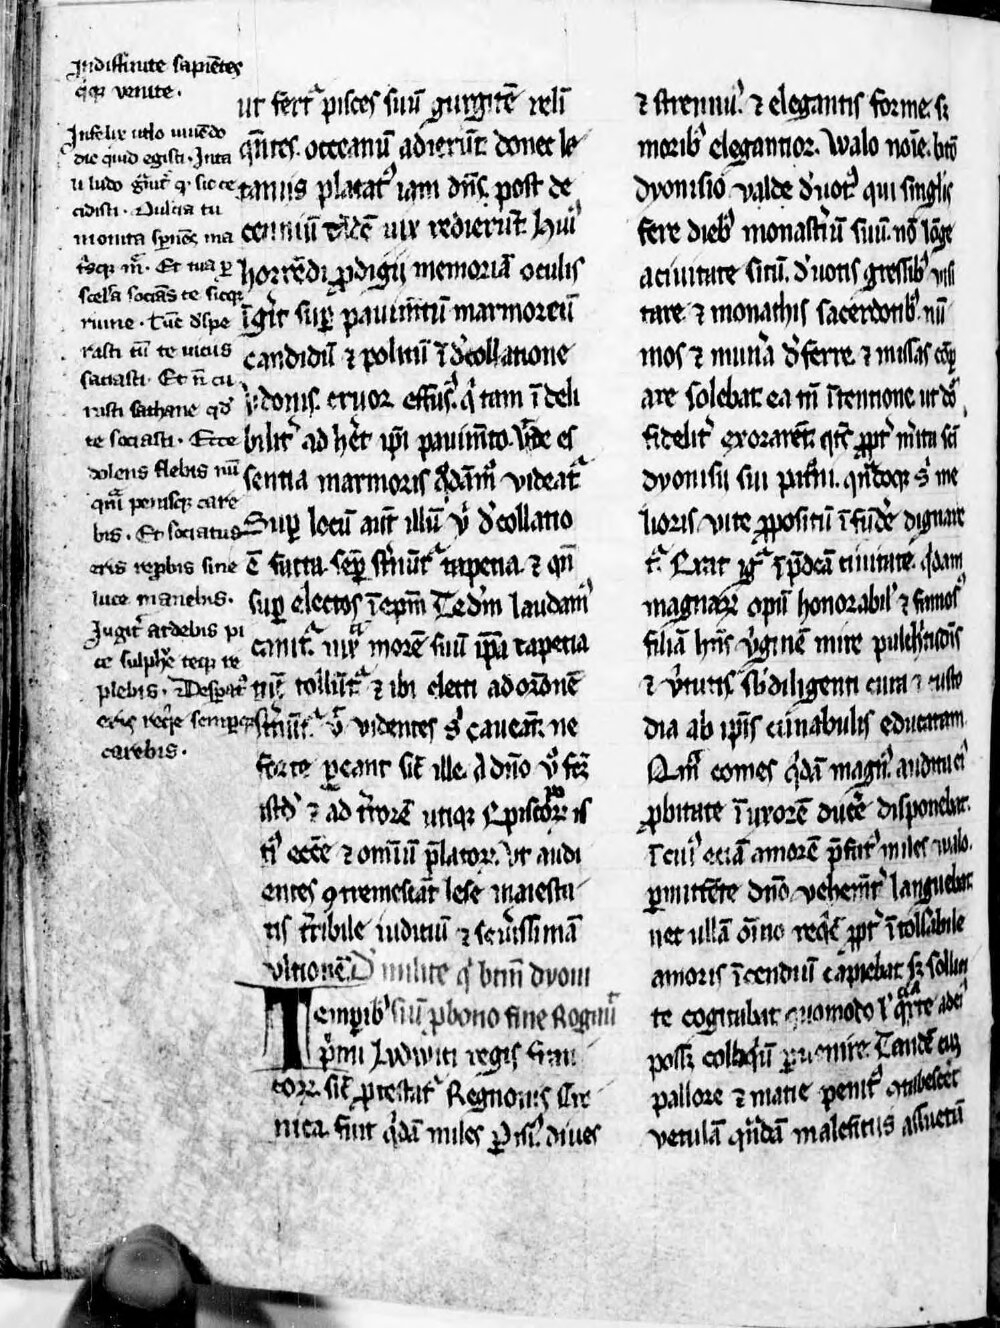 Indiffinite sapiētes
q̄q̨ venite.
Infelix
dic quid egisti. Inta
ludo
cidisti. Dulcia tu
monita sp̄nēs ma
Et tua ꝑ
scela socias te sicq̨
ruine. Tūc dſpe
rasti tū te uicus
saciasti. Et n̄ cu
rasti sathane qd̄
te sociasti. Ecce
dolens flebis
penisq̨ care
bis. Et sociatus
eris reꝓbis sine
luce manebis.
Iugit̄ ardebis pi
ce sulphe teq̨ te
plebis. Despat᷒
eris req̄e semper
carebis.
ut fert᷑ pisces suū gurgitē reli
q̄ntes. occeanū adierūt donec le
tanus placat᷒ iam dn̄s. post de
cenniū uix redierūt. Hui᷒
horrēdi ꝓdigij memoriā oculis
īgit suꝑ pauimtū marmoreū
candidū ⁊ politū ī dcollatione
vdonis. cruor effus᷒. q̄ tam ī deli
bilit᷑ ad her̄t ip̄i pauimto. vn̄de es
sentia marmoris q̄dāmō videat᷑
Suꝑ locū aut̄ illū v̄ dcollatio
ē facta. semꝑ st̄nūt᷑ tapetia. ⁊ qn̄
suꝑ electos ī ep̄m Te dm̄ laudam᷒
canit᷑. iux͛ morē suū ip̄a tapetia
tūc tollūt᷑ ⁊ ibi electi ad orōnē
st̄nūt᷑. videntes s caueāt ne
forte ꝑeant sic̄ ille. A dn̄o v̄
istd̄ ⁊ ad t̄rorē utiq̨ Episcoꝝ is
ti᷒ ecc̄e ⁊ omīū p̄latoꝝ. vt audi
entes ꝯtremescāt lese maiesta
tis t̄ribile iudiciū ⁊ seūissimā
vltionē. D᷒ milite q̄ btm̄ dyoni
Tempib᷒ siū ꝓ bono fine Rogauit
p̄mi Ludwici regis fran
coꝝ. sic̄ ꝓtestat᷑ Regnonis Cro
nica. fuit q̄dā miles pisi᷒. diues
⁊ strennu᷒. ⁊ elegantis forme. sꝫ
morib᷒ elegantior. Walo noīe. bt̄o
dyonisio valde duot᷒ qui singlis
fere dieb᷒ monast̄iū suū. nō lōge
a ciuitate sitū. duotis gressib᷒ visi
tare ⁊ monachis sacerdotib᷒. nū
mos ⁊ munā dferre. ⁊ missas cōꝑ
are solebat. ea tn̄ ītentione ut do᷒
fidelit᷑ exorarēt. qt̄ ꝓpt᷑ mita sc̄i
dyonisii sui pat̄ni. qn̄doq̨ s me
lioris vite ꝓpositū īfunde dignare
t᷑. Erat ig᷑ ī p̄dcā ciuitate. q̄dam
magnaꝝ opū honorabil᷒ ⁊ famos᷒
filiā hn̄s v̄ginē mire pulch̄tudis
⁊ v̄tutis. sb diligenti cura ⁊ custo
dia ab ip̄is cunabulis educatam.
Qm̄ comes q̄dā magn᷒. audita ei᷒
ꝓbitate ī uxorē ducē disponebat.
ī cui᷒ eciā amorē p̄fat᷒ miles walo.
ꝑmittēte dn̄o vehemt᷑ languebat.
nec ullā oīno reqē ꝓpt᷑ ītollabile
amoris īcendiū capiebat. sꝫ sollici
te cogitabat quomodo adei᷒
posset colloq̄ū ꝑuenire. Tandē
pallore ⁊ macie penit᷒
vetulā qn̄dā maleficiis assuetū